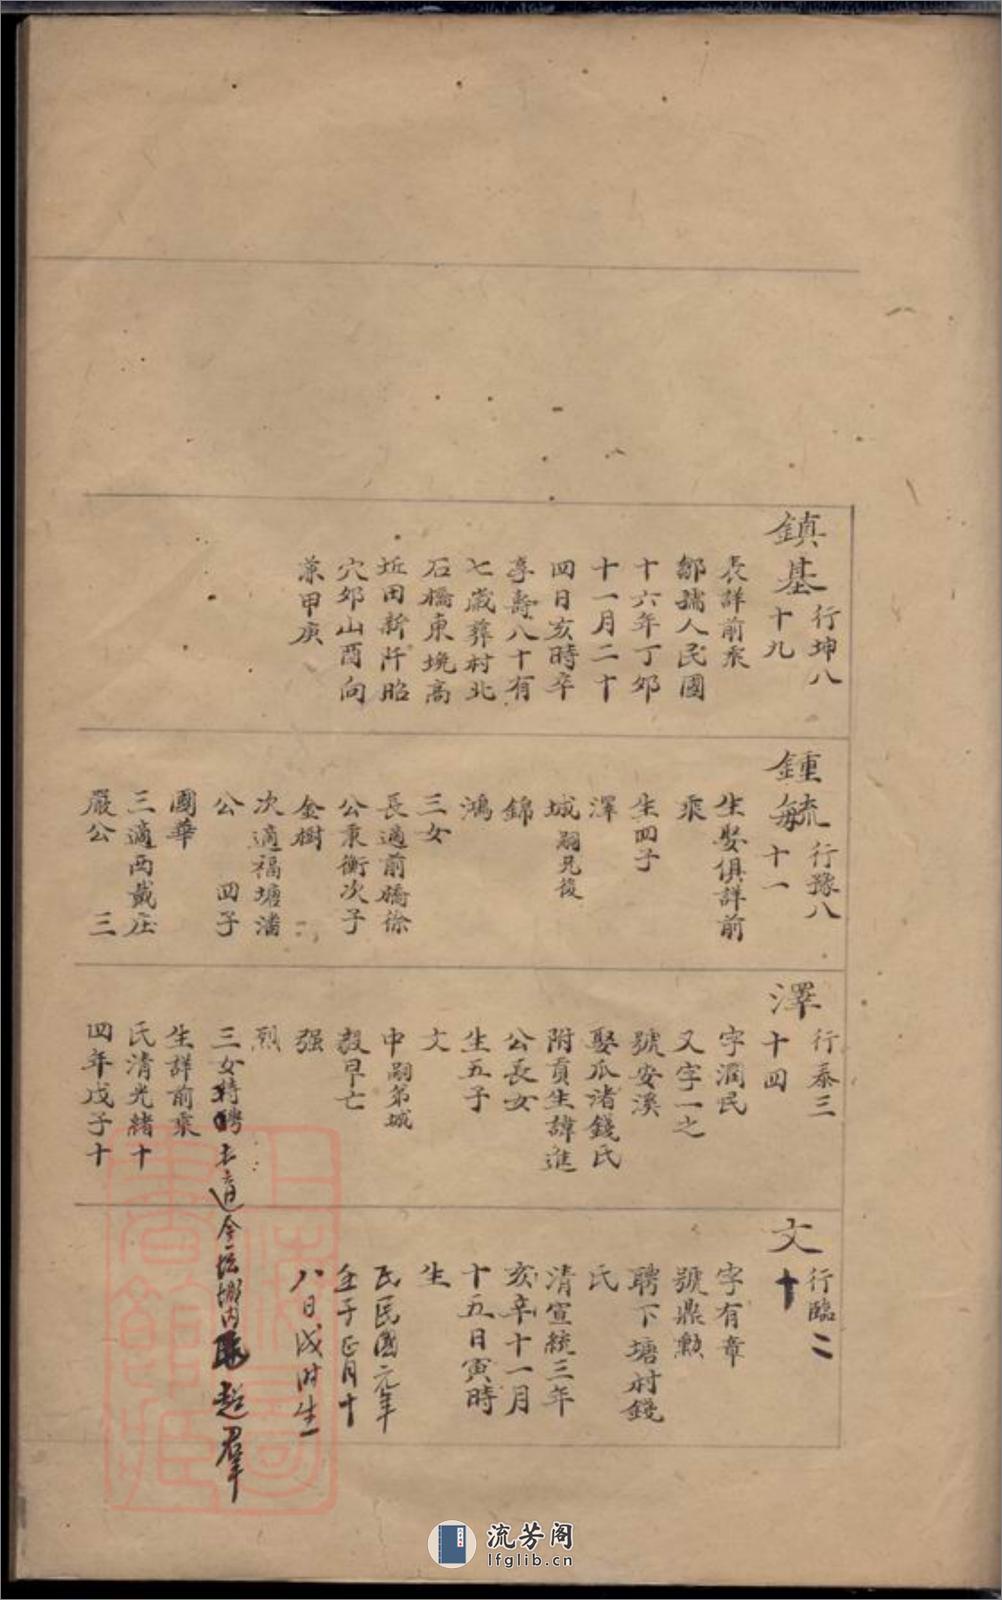 鎮基
行坤八
十九
表詳前乘
鄒端人民國
十六年丁卯
十一月二十
四日亥時卒
享壽八十有
七歲葬村北
石橋東堍高
坵田新阡昭
穴卯山酉向
兼甲庚
鍾毓
行豫八
十一
生娶俱詳前
乘
生四子
澤
城嗣兄後
錦
鴻
三女
長適前橋徐
公秉衡次子
金樹
次適福塘潘
公 四子
國華
三適西戴庄
嚴公 三
澤
行泰三
十四
字潤民
又字一之
號安溪
娶瓜渚錢氏
附貢生諱進
公長女
生五子
文
中嗣弟城
毅早亡
强
烈
三女
適金壇
超羣
生詳前乘
氏清光緒十
四年戊子十
文
行臨二
十
字有章
號鼎勲
聘下塘村錢
氏
清宣統三年
亥辛十一月
十五日寅時
生
氏民國元年
壬子正月十
八日戌时生
流芳阁
lfglib.cn